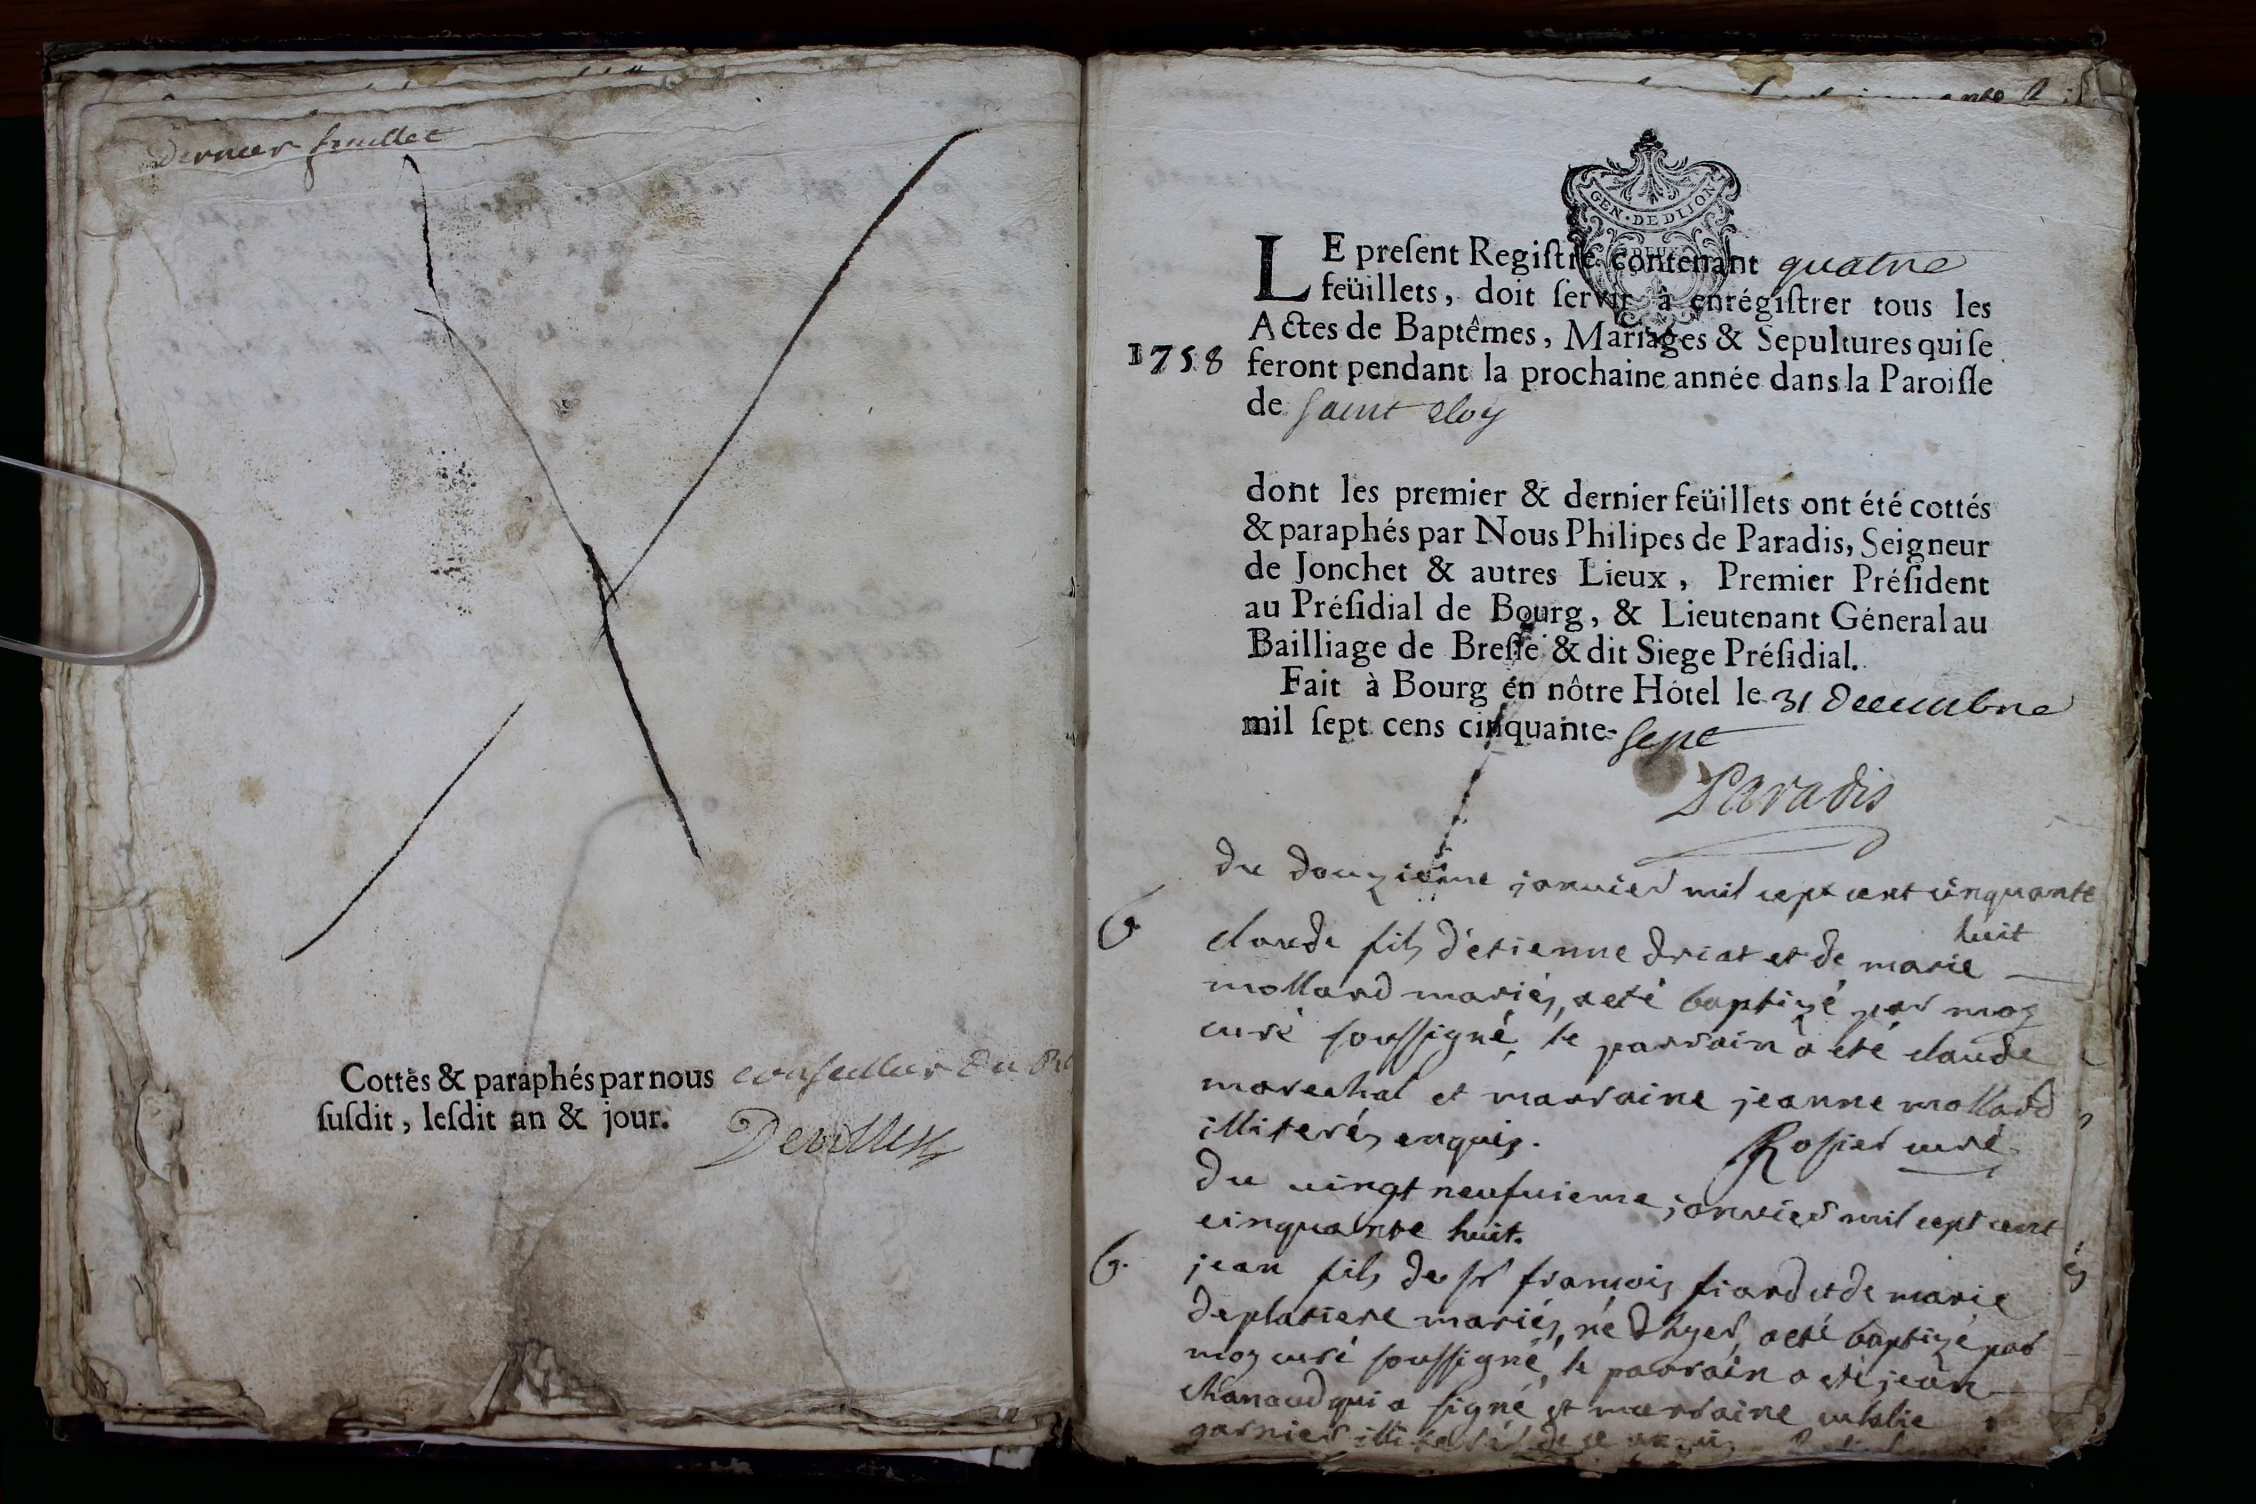 dernier feuillet
Cottés & paraphés par nous conseiller du
ſuſdit, leſdit an & jour.
GEN. DE DIJON
DEUX
LE preſent Regiſtre contenant quatre
feüillets, doit ſervir à enrégiſtrer tous les
Actes de Baptêmes, Mariages & Sepultures qui ſe
1758 feront pendant la prochaine année dans la Paroiſſe
de saint eloy
dont les premier & dernier feüillets ont été cottés
& paraphés par Nous Philipes de Paradis, Seigneur
de Jonchet & autres Lieux, Premier Préſident
au Préſidial de Bourg, & Lieutenant Géneral au
Bailliage de Breſſe & dit Siege Préſidial.
Fait à Bourg en nôtre Hôtel le 31 decembre
mil ſept cens cinquante-sept
Paradis
du douzieme janvier mil sept cent cinquante
huit
B claude fils d'etienne driat et de marie
mollard mariés, a eté baptizé par moy
curé soussigné, le parrain a eté claude
marechal et marraine jeanne mollard
illiterés enquis. Rosier curé
du vingt neufvieme janvier mil sept cent
cinquante huit.
B. jean fils de sr francois fiard et de marie
deplatiere mariés, né d'hyer, a eté baptizé par
moy curé soussigné, le parrain a eté jean
chanaud qui a signé et marraine
garnier